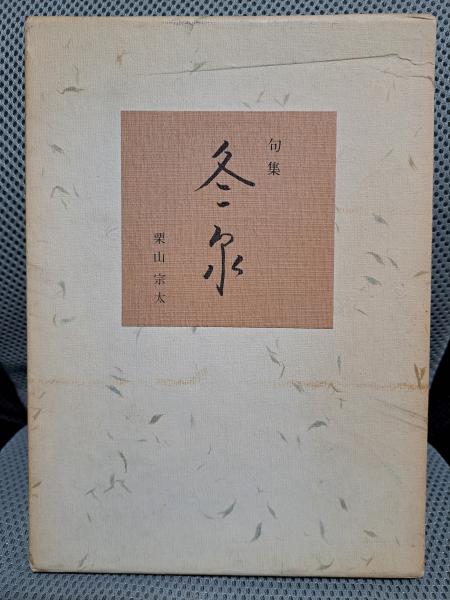 句集
冬泉
栗山宗太